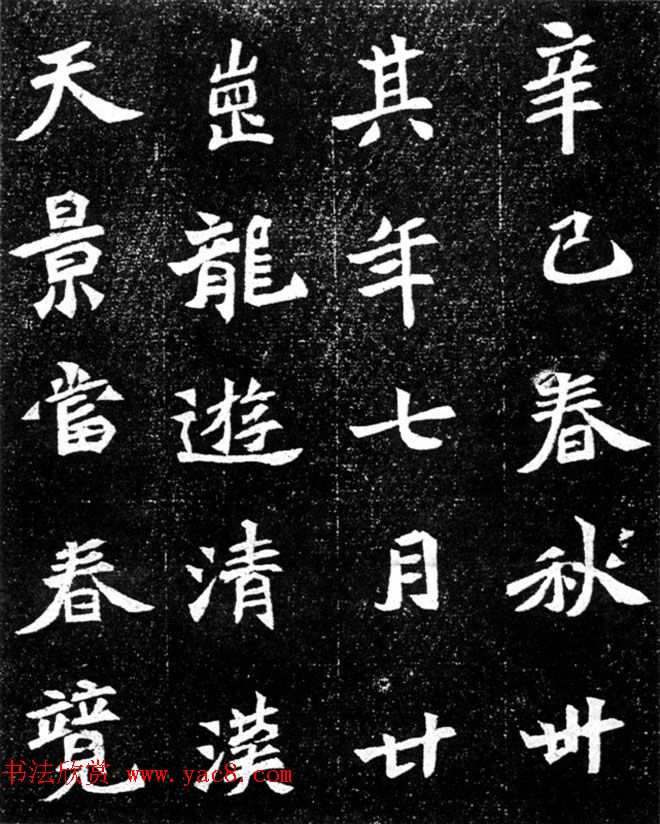 辛巳春秋卌
其年七月廿
龍遊清漢
天景當春
书法欣赏 www.yac8.com